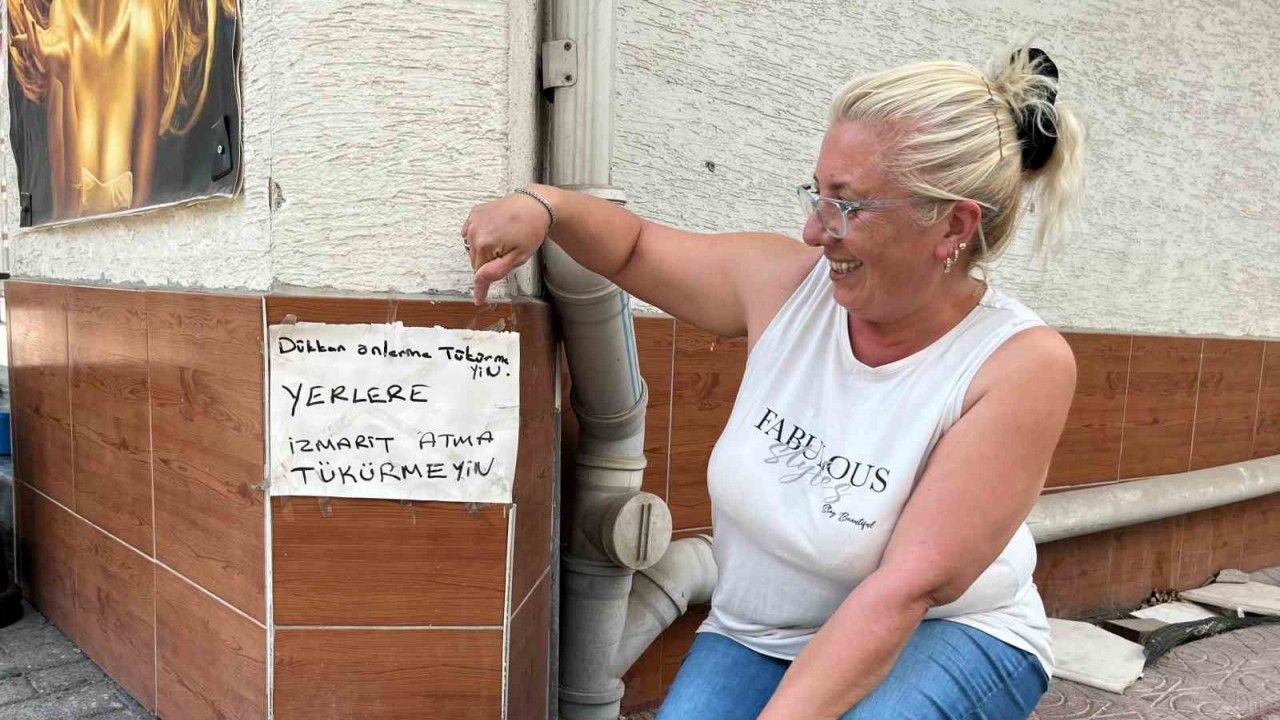 Dükkan önlerine Tükürme
YİN.
YERLERE
İZMARİT ATMA
TÜKÜRMEYİN
FABULOUS
Styles
Stay Beautiful